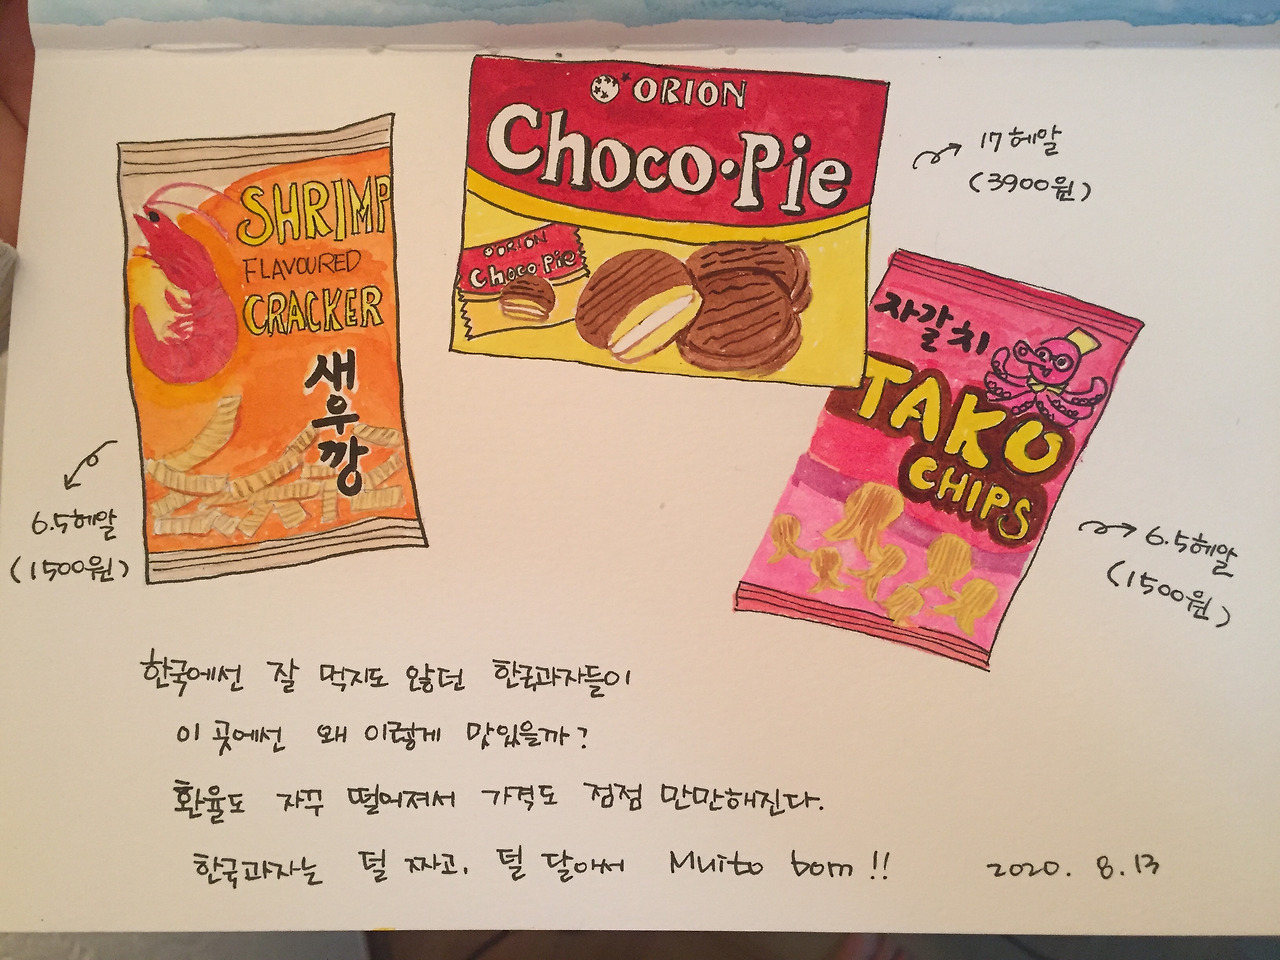 ORION
Choco·Pie
ORION
Choco Pie
17헤알
(3900원)
SHRIMP
FLAVOURED
CRACKER
새우깡
6.5헤알
(1500원)
자갈치
TAKO
CHIPS
6.5헤알
(1500원)
한국에선 잘 먹지도 않던 한국과자들이
이 곳에선 왜 이렇게 맛있을까?
환율도 자꾸 떨어져서 가격도 점점 만만해진다.
한국과자는 덜 짜고, 덜 달아서 Muito bom!!
2020. 8. 13